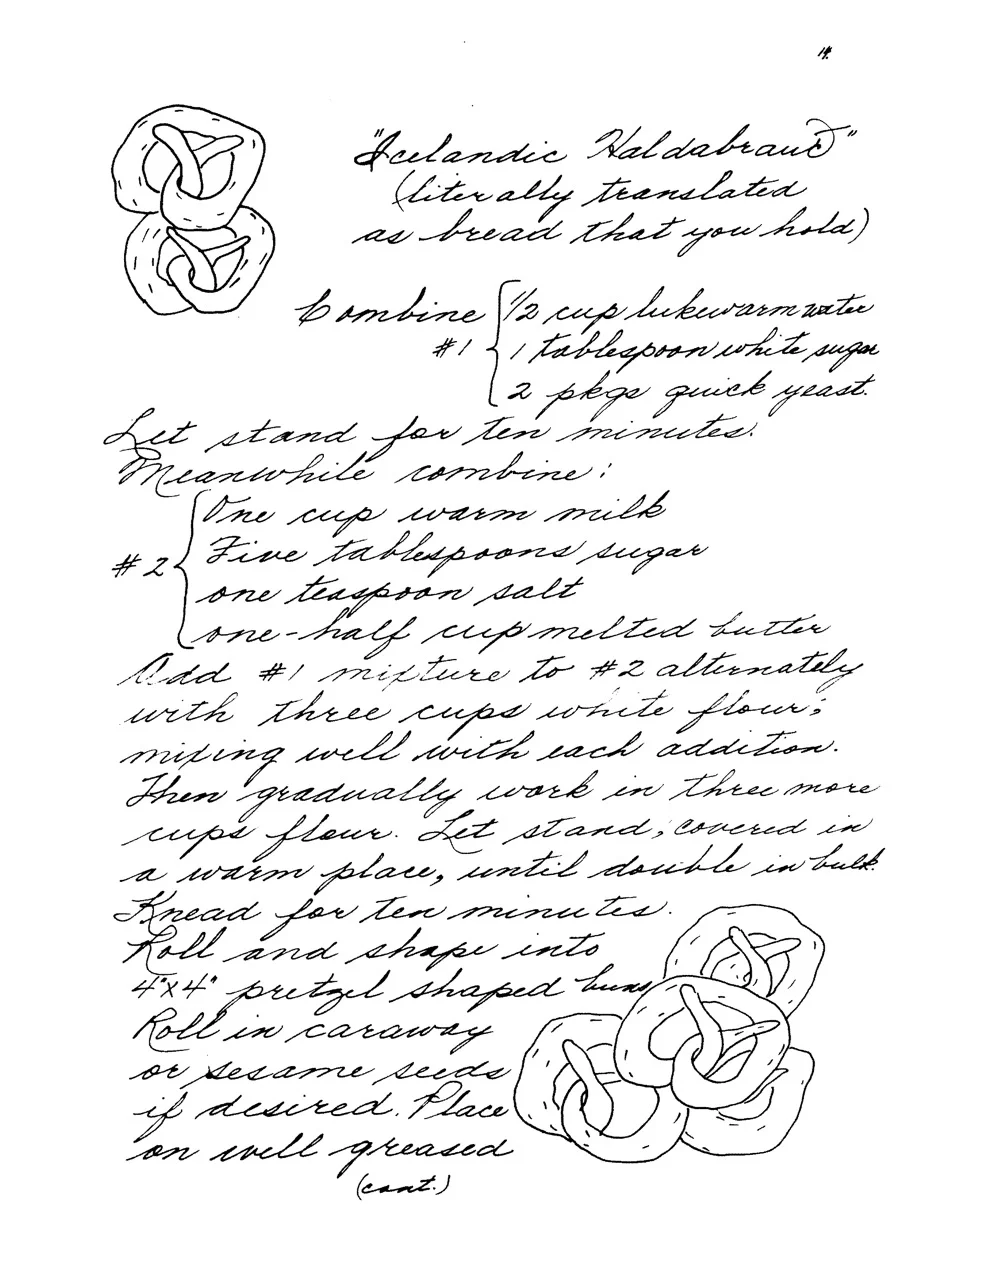 14.
"Icelandic Haldabraud"
(literally translated
as bread that you hold)
Combine { 1/2 cup lukewarm water
#1 1 tablespoon white sugar
2 pkgs quick yeast.
Let stand for ten minutes.
Meanwhile combine:
One cup warm milk
#2 { Five tablespoons sugar
one teaspoon salt
one-half cup melted butter
Add #1 mixture to #2 alternately
with three cups white flour;
mixing well with each addition.
Then gradually work in three more
cups flour. Let stand, covered in
a warm place, until double in bulk.
Knead for ten minutes.
Roll and shape into
4"x4" pretzel shaped buns
Roll in caraway
or sesame seeds
if desired. Place
on well greased
(cont.)